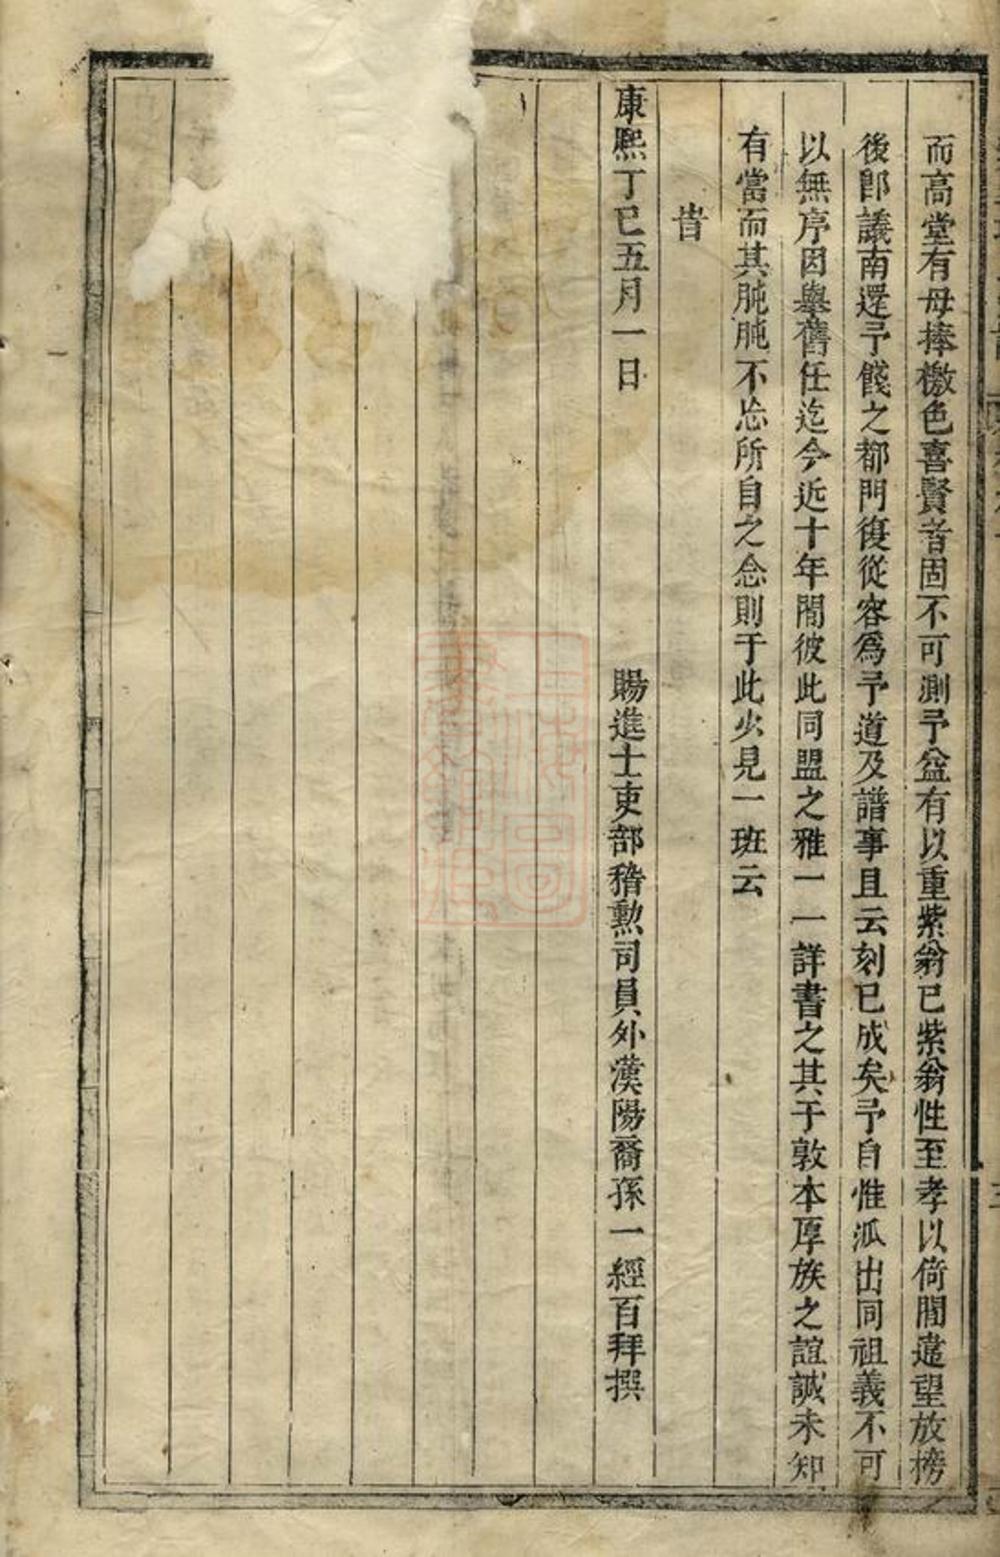 而高堂有母捧檄色喜賢者固不可測予益有以重紫翁已紫翁性至孝以倚閭遠望放榜
後即議南還予餞之都門復從容爲予道及譜事且云刻已成矣予自惟派出同祖義不可
以無序因舉舊任迄今近十年間彼此同盟之雅一一詳書之其于敦本厚族之誼誠未知
有當而其肫肫不忘所自之念則于此少見一班云
旹
康熈丁巳五月一日　賜進士吏部稽勲司員外漢陽裔孫一經百拜撰